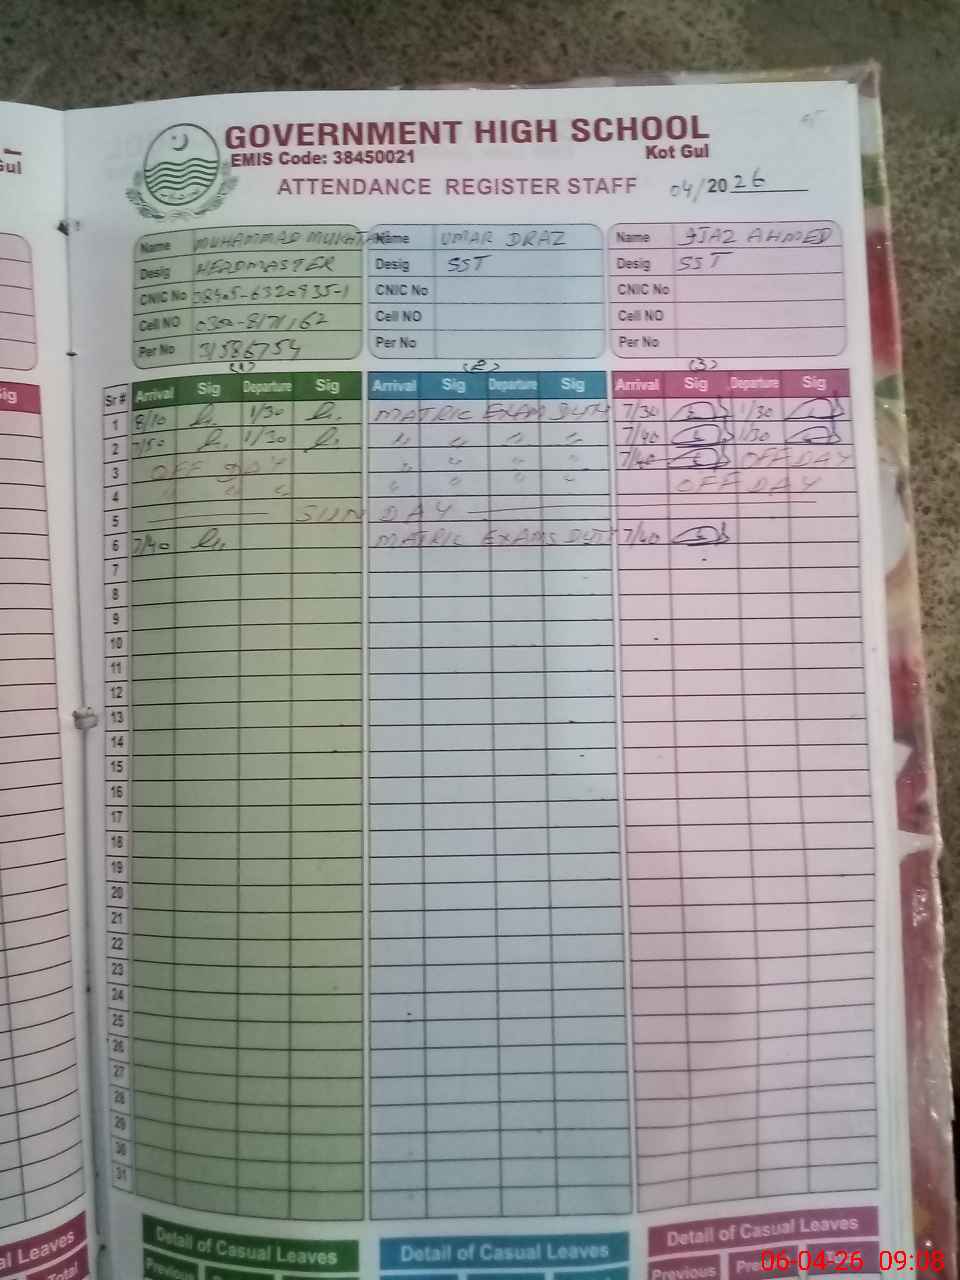 GOVERNMENT HIGH SCHOOL
EMIS Code: 38450021 Kot Gul
ATTENDANCE REGISTER STAFF 04/2026
Name MUHAMMAD MUKHTAR Name UMAR DRAZ Name IJAZ AHMED
Desig HEADMASTER Desig SST Desig SST
CNIC No CNIC No CNIC No
Cell NO Cell NO Cell NO
Per No 31586754 Per No Per No
(1) (2) (3)
Sr # Arrival Sig Departure Sig Arrival Sig Departure Sig Arrival Sig Departure Sig
1 8/10 1/30 MATRIC EXAM DUTY 7/30 1/30
2 7/50 1/30 " " " " 7/40 1/30
3 OFF DAY " " " " 7/40 OFF DAY
4 " " " " " " " OFF DAY
5 SUNDAY
6 7/40 MATRIC EXAMS DUTY 7/40
7
8
9
10
11
12
13
14
15
16
17
18
19
20
21
22
23
24
25
26
27
28
29
30
31
Detail of Casual Leaves Detail of Casual Leaves Detail of Casual Leaves
Previous Previous
06-04-26 09:08